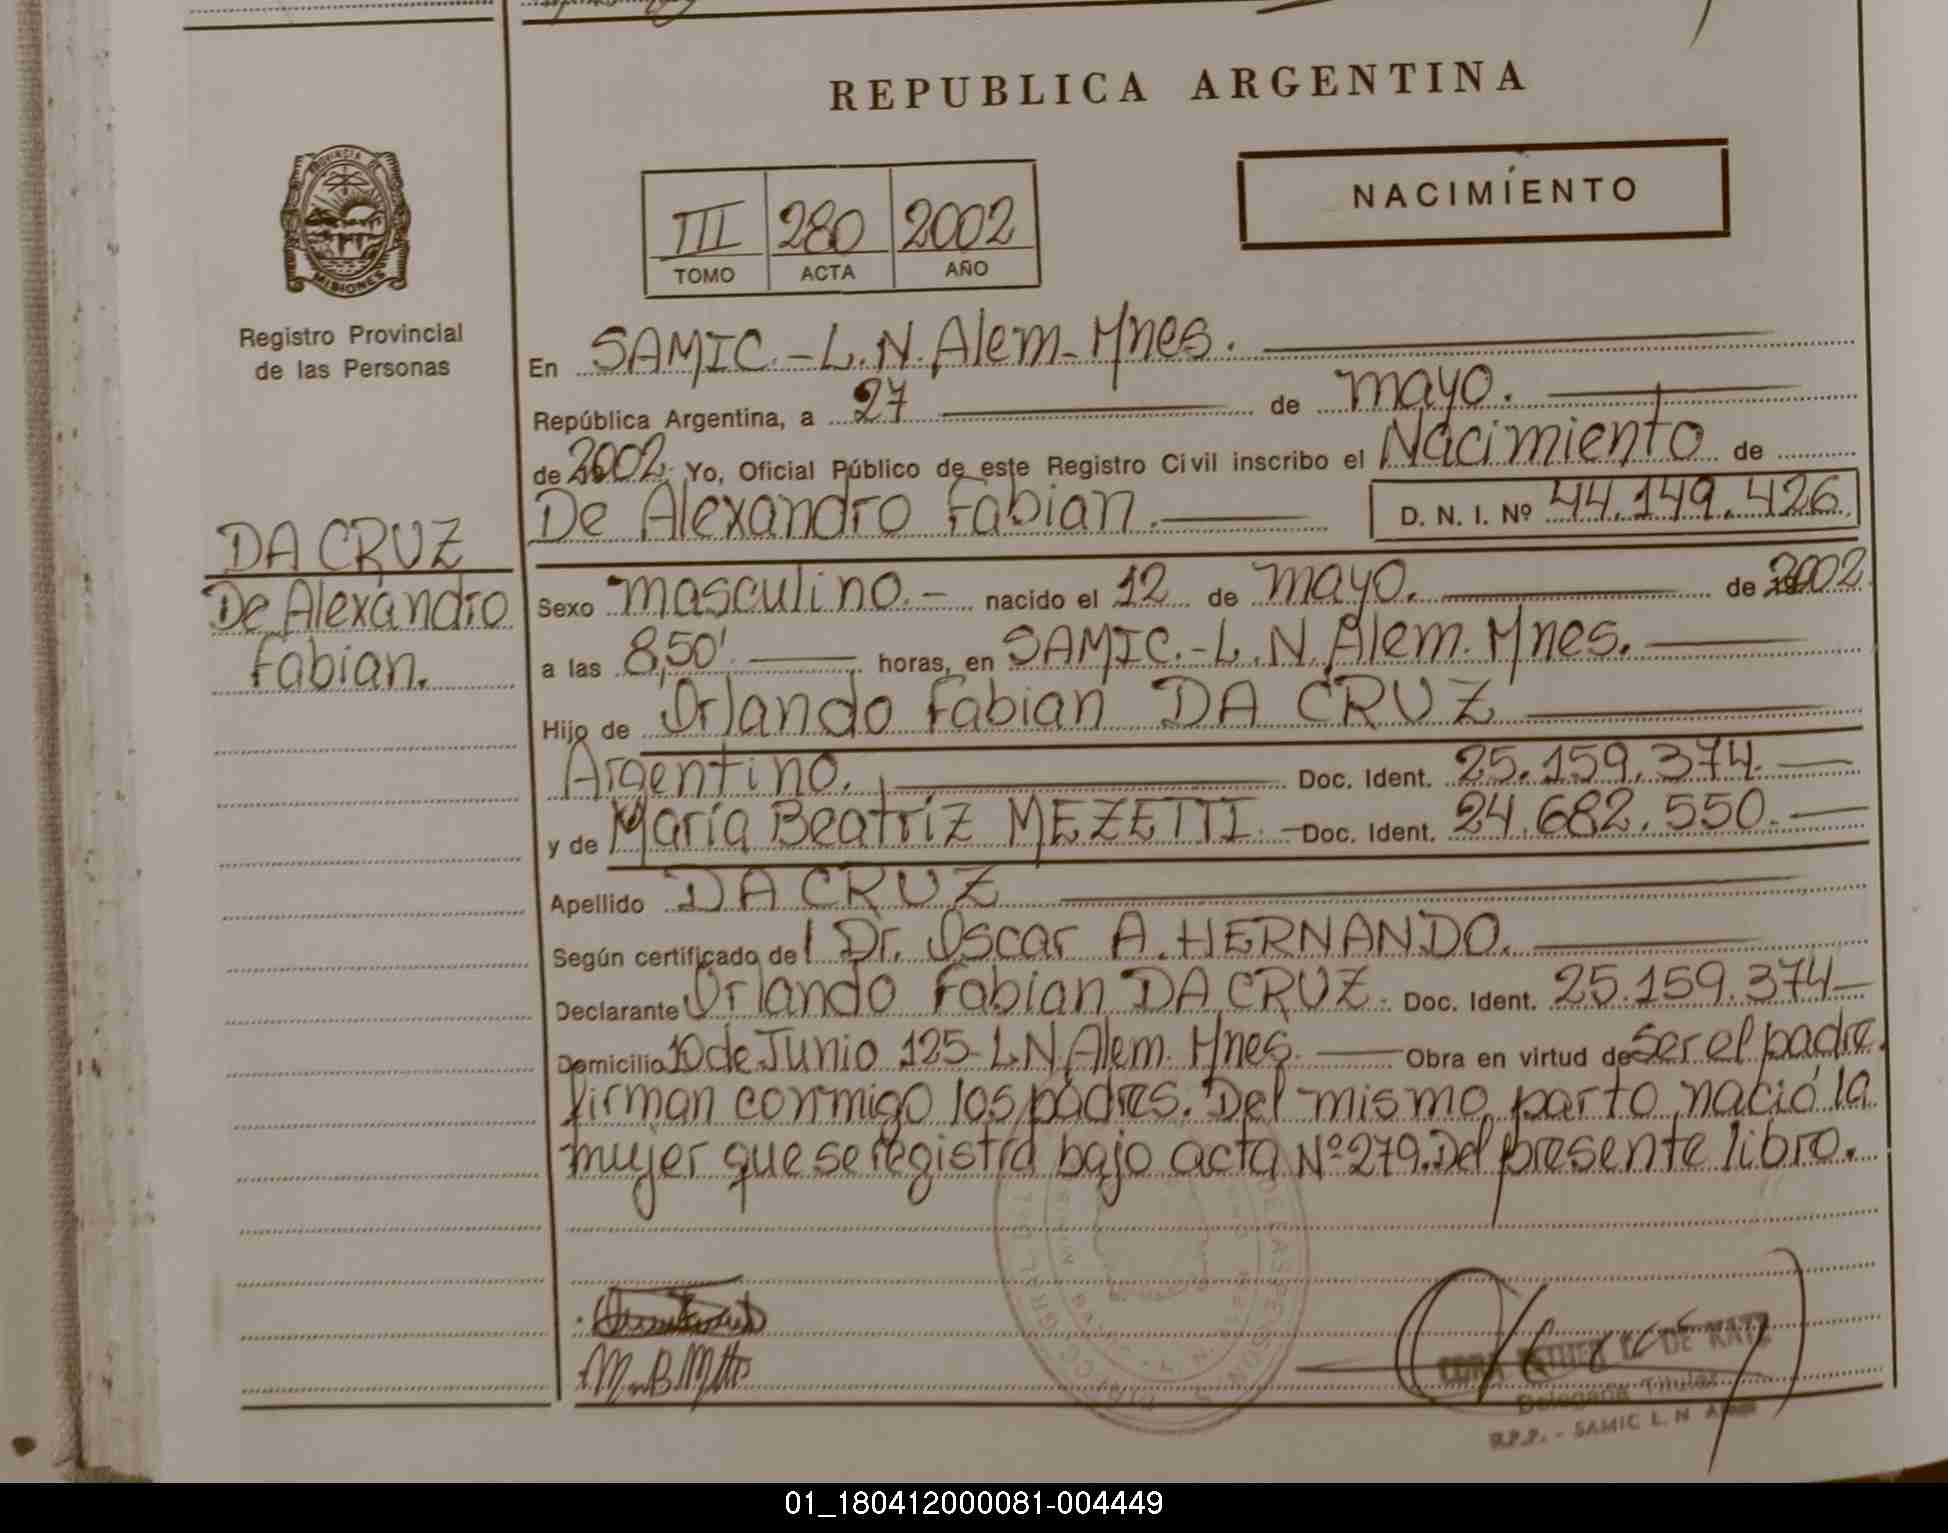 REPUBLICA ARGENTINA
NACIMIENTO
III 280 2002
TOMO ACTA AÑO
PROVINCIA DE MISIONES
Registro Provincial
de las Personas
DA CRUZ
De Alexandro
Fabian.
En SAMIC.-L.N.Alem-Mnes.
República Argentina, a 27 de mayo.
de 2002. Yo, Oficial Público de este Registro Civil inscribo el Nacimiento de
De Alexandro Fabian. D. N. I. Nº 44.149.426.
Sexo masculino.- nacido el 12 de mayo. de 2002
a las 8,50' horas, en SAMIC.-L.N.Alem. Mnes.
Hijo de Orlando Fabian DA CRUZ
Argentino. Doc. Ident. 25.159.374.
y de María Beatriz MEZETTI. Doc. Ident. 24.682.550.
Apellido DA CRUZ
Según certificado del Dr. Oscar A. HERNANDO.
Declarante Orlando Fabian DA CRUZ. Doc. Ident. 25.159.374
Domicilio 10 de Junio 125-L.N.Alem. Mnes. Obra en virtud de ser el padre.
Firman conmigo los padres. Del mismo parto nació la
mujer que se registra bajo acta Nº 279. Del presente libro.
DE KATZ
Delegada Titular
R.P.P. - SAMIC L. N.
01_180412000081-004449